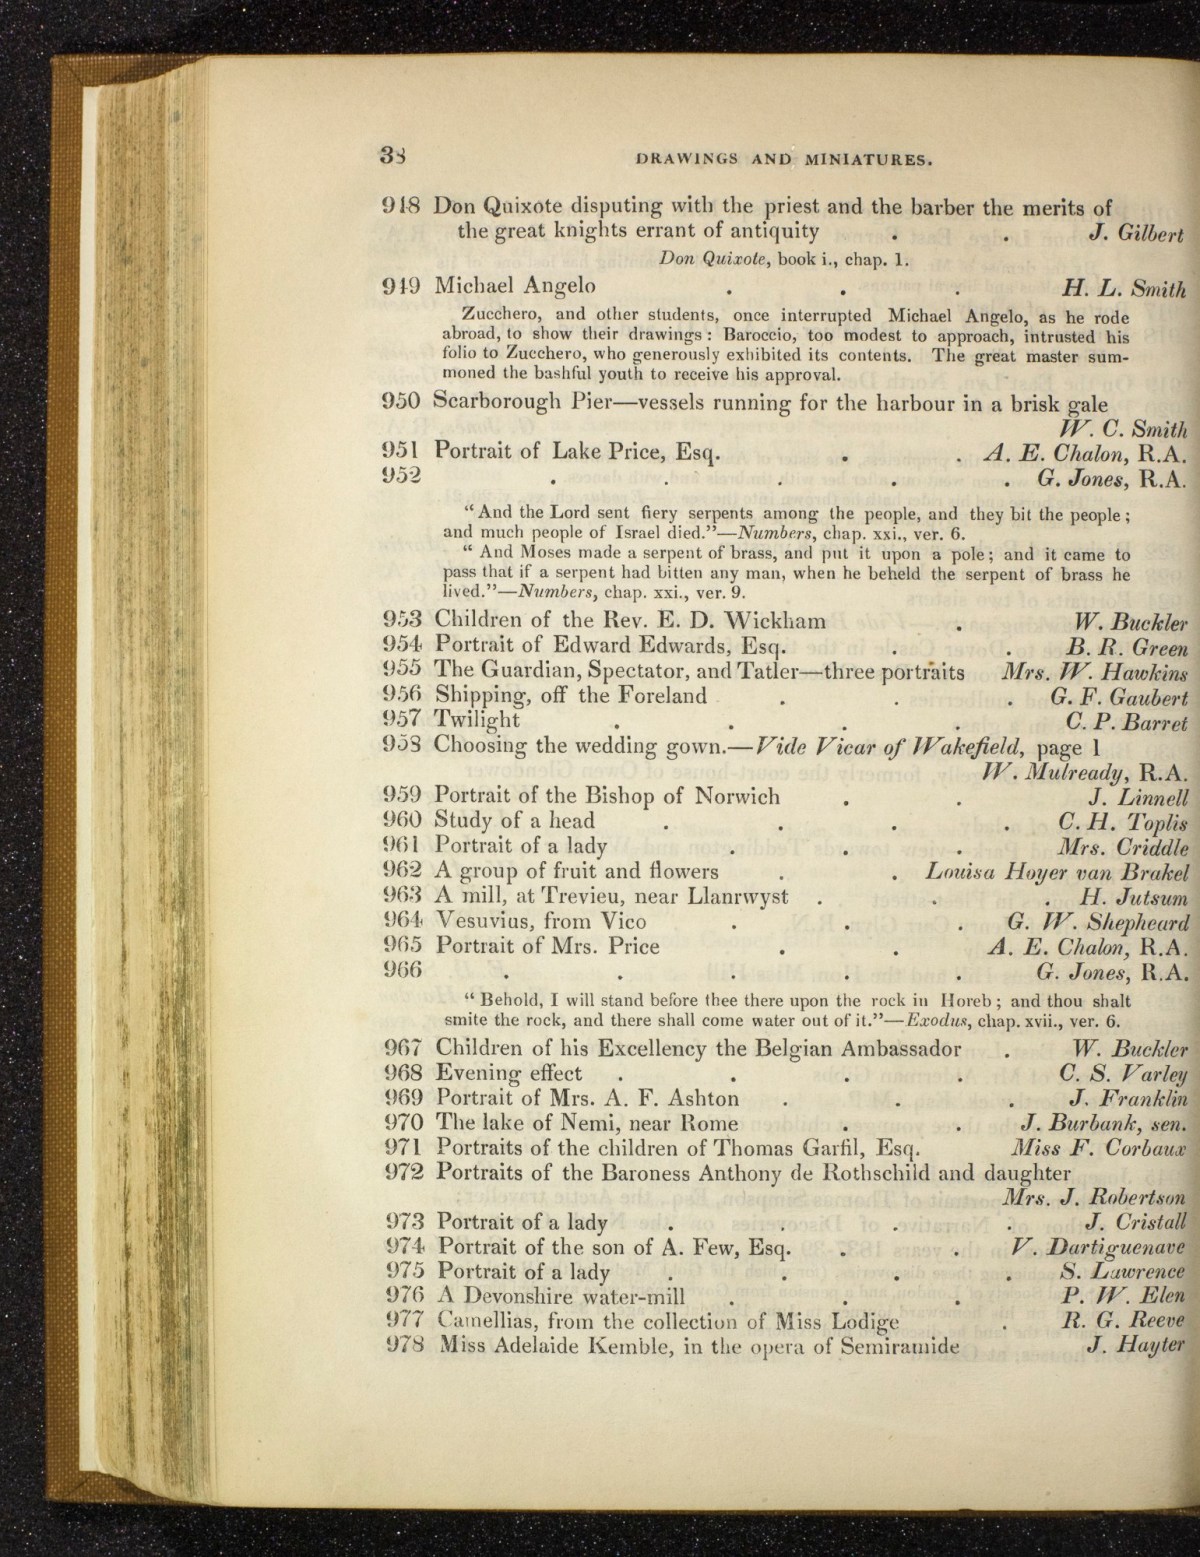 38 DRAWINGS AND MINIATURES.
948 Don Quixote disputing with the priest and the barber the merits of
the great knights errant of antiquity . . J. Gilbert
Don Quixote, book i., chap. 1.
949 Michael Angelo . . . H. L. Smith
Zucchero, and other students, once interrupted Michael Angelo, as he rode
abroad, to show their drawings: Baroccio, too modest to approach, intrusted his
folio to Zucchero, who generously exhibited its contents. The great master sum-
moned the bashful youth to receive his approval.
950 Scarborough Pier—vessels running for the harbour in a brisk gale
W. C. Smith
951 Portrait of Lake Price, Esq. . . A. E. Chalon, R.A.
952 . . . . . G. Jones, R.A.
“And the Lord sent fiery serpents among the people, and they bit the people;
and much people of Israel died.”—Numbers, chap. xxi., ver. 6.
“And Moses made a serpent of brass, and put it upon a pole; and it came to
pass that if a serpent had bitten any man, when he beheld the serpent of brass he
lived.”—Numbers, chap. xxi., ver. 9.
953 Children of the Rev. E. D. Wickham . W. Buckler
954 Portrait of Edward Edwards, Esq. . . B. R. Green
955 The Guardian, Spectator, and Tatler—three portraits Mrs. W. Hawkins
956 Shipping, off the Foreland . . . G. F. Gaubert
957 Twilight . . . . C. P. Barret
958 Choosing the wedding gown.—Vide Vicar of Wakefield, page 1
W. Mulready, R.A.
959 Portrait of the Bishop of Norwich . . J. Linnell
960 Study of a head . . . . C. H. Toplis
961 Portrait of a lady . . . Mrs. Criddle
962 A group of fruit and flowers . . Louisa Hoyer van Brakel
963 A mill, at Trevieu, near Llanrwyst . . . H. Jutsum
964 Vesuvius, from Vico . . . G. W. Shepheard
965 Portrait of Mrs. Price . . A. E. Chalon, R.A.
966 . . . . . G. Jones, R.A.
“Behold, I will stand before thee there upon the rock in Horeb; and thou shalt
smite the rock, and there shall come water out of it.”—Exodus, chap. xvii., ver. 6.
967 Children of his Excellency the Belgian Ambassador . W. Buckler
968 Evening effect . . . . C. S. Varley
969 Portrait of Mrs. A. F. Ashton . . . J. Franklin
970 The lake of Nemi, near Rome . . J. Burbank, sen.
971 Portraits of the children of Thomas Garfil, Esq. Miss F. Corbaux
972 Portraits of the Baroness Anthony de Rothschild and daughter
Mrs. J. Robertson
973 Portrait of a lady . . . . J. Cristall
974 Portrait of the son of A. Few, Esq. . . V. Dartiguenave
975 Portrait of a lady . . . . S. Lawrence
976 A Devonshire water-mill . . . P. W. Elen
977 Camellias, from the collection of Miss Lodige . R. G. Reeve
978 Miss Adelaide Kemble, in the opera of Semiramide J. Hayter